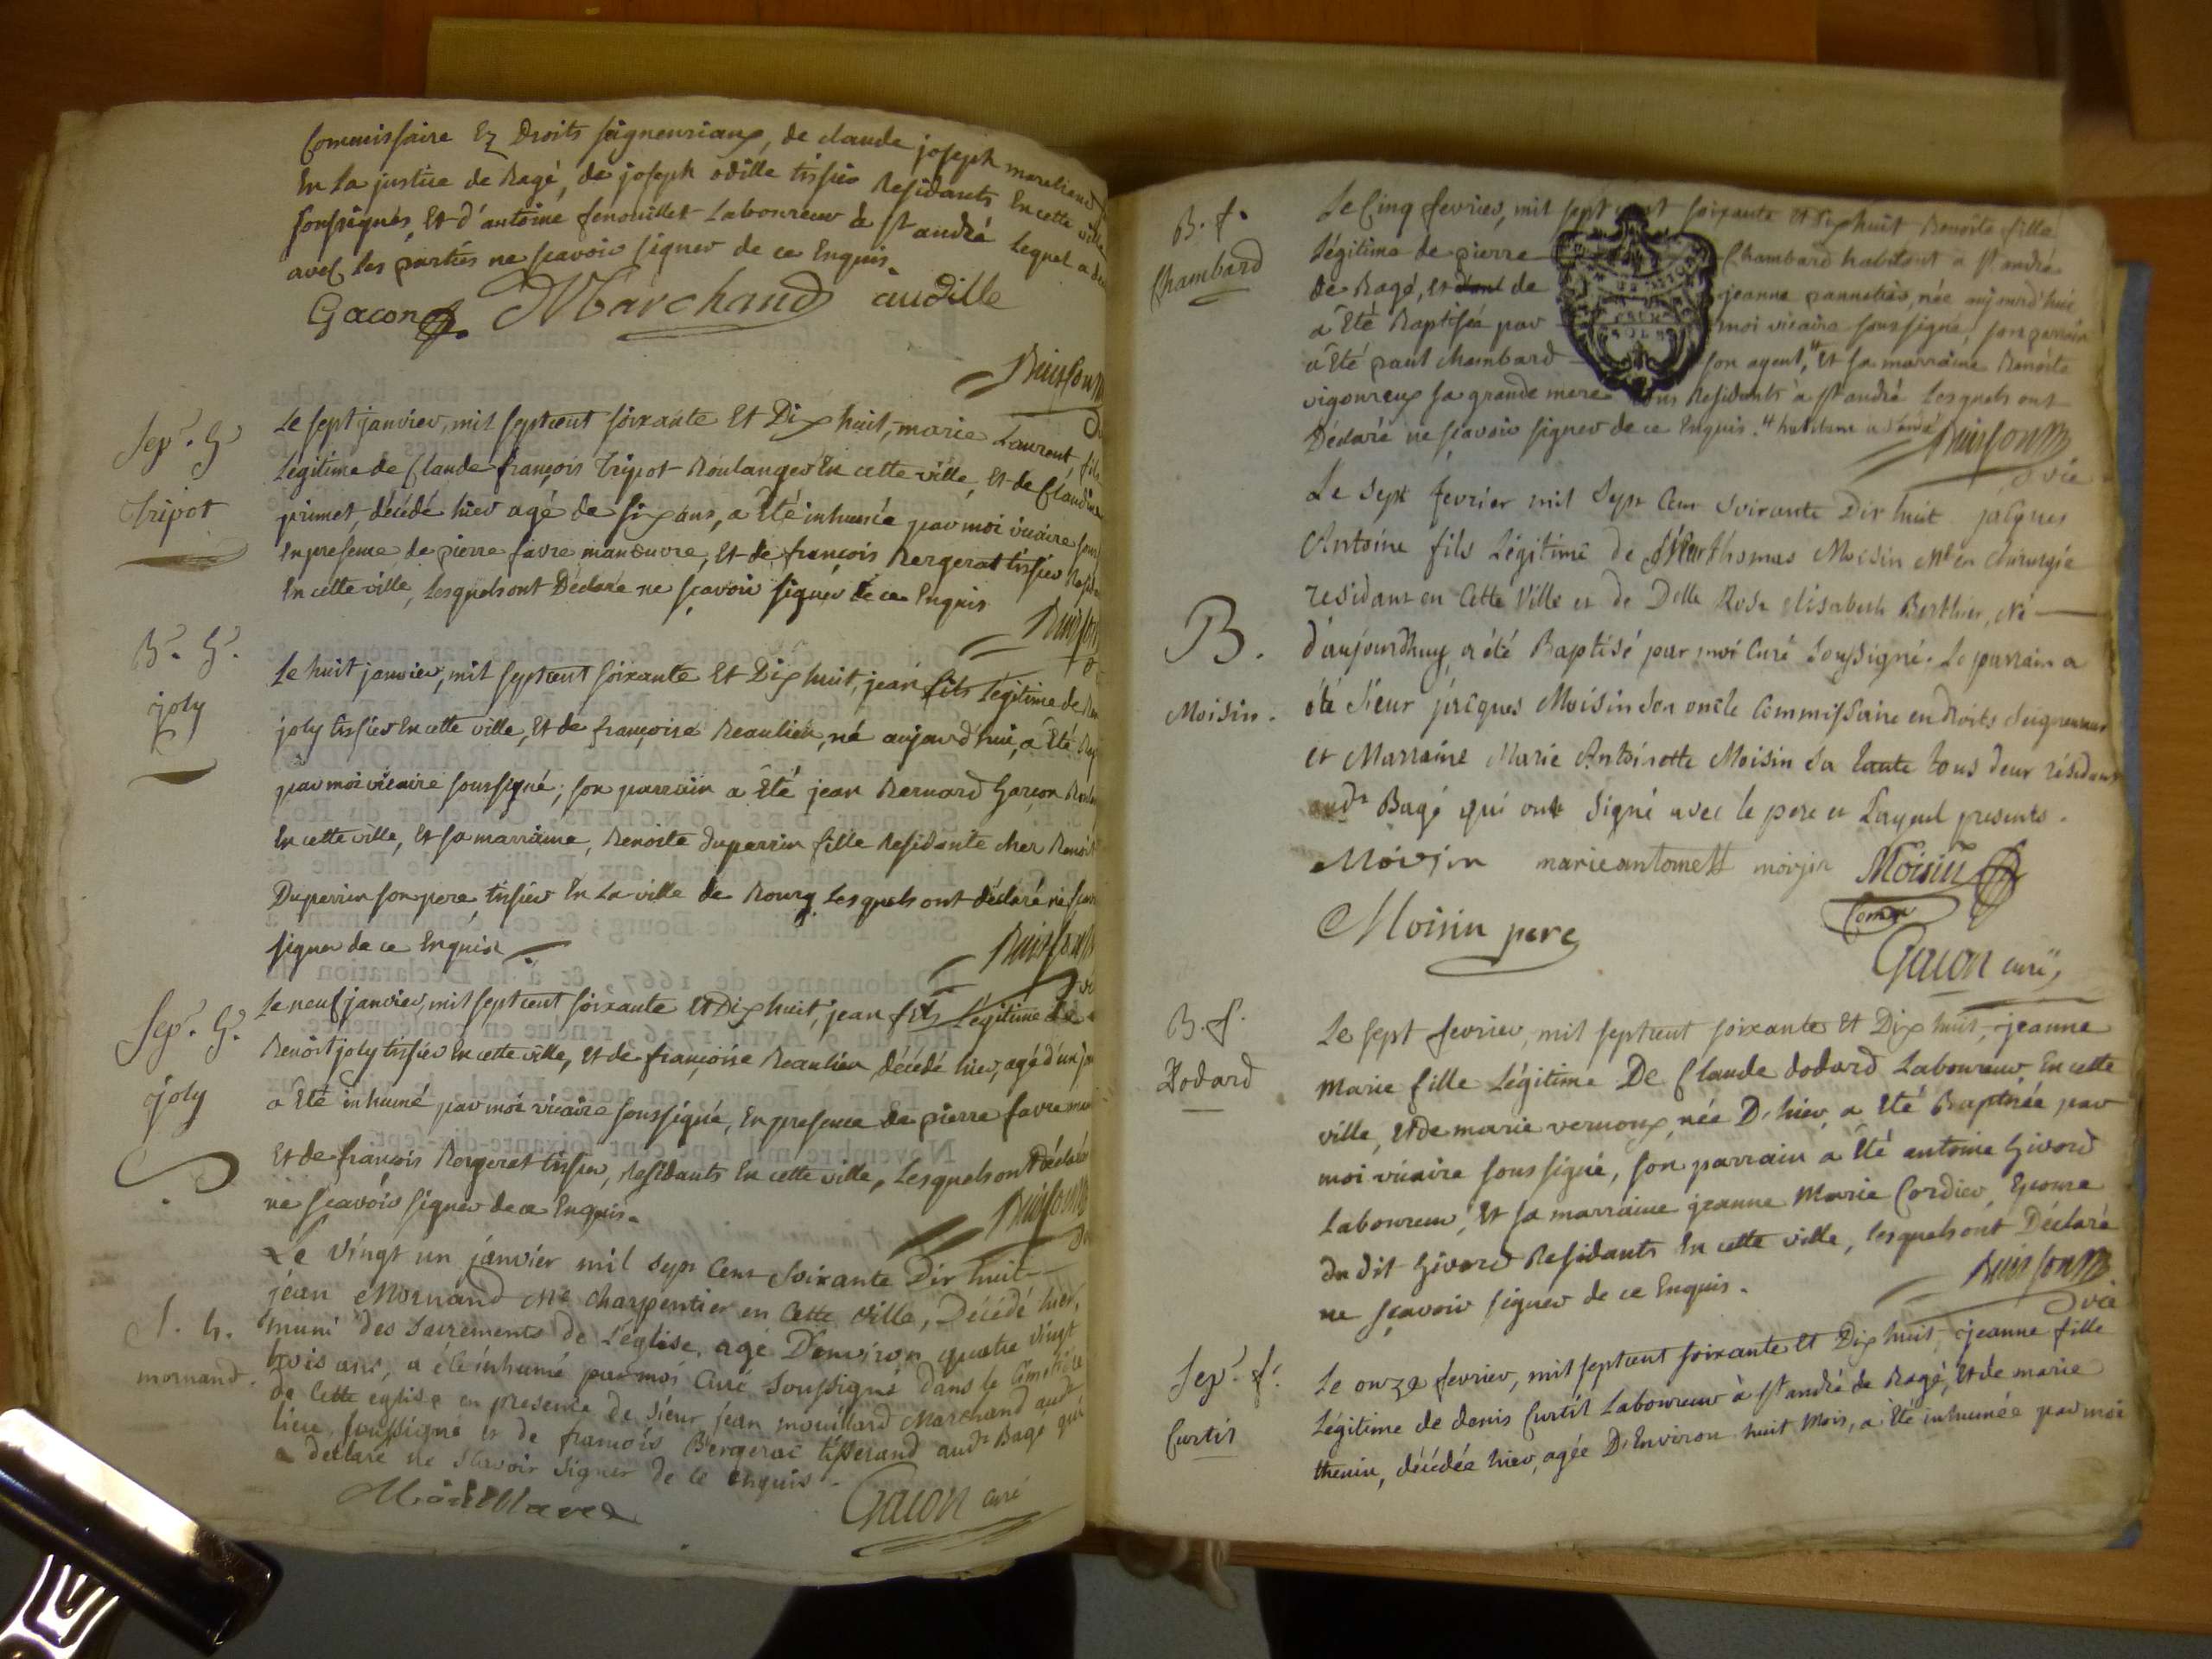 Commissaire Ez Droits seigneuriaux, de claude joseph marchand
En La justice de Bagé, de joseph odille tissier Residants En cette ville
soussignés, Et d'antoine fenouillet Laboureur à st andré Lequel a
avec les parties ne scavoir signer de ce Enquis.
Gacon Marchand audille
Buisson
Sep. G
Tripot
Le sept janvier, mil septcent soixante Et Dix huit, marie Laurent, fils
Légitime de Claude françois Tripot Boulanger En cette ville, Et de Claudine
primet, décédé hier agé de six ans, a Eté inhumée par moi vicaire
En presence de pierre favre manœuvre, Et de françois Bergerat tissier
En cette ville, Lesquels ont Déclaré ne sçavoir signer de ce Enquis
B. G.
joly
Le huit janvier, mil septcent soixante Et Dix huit, jean fils Légitime de
joly tissier En cette ville, Et de françoise Beaulieu, né aujourd'hui, a Eté
par moi vicaire soussigné; son parrain a Eté jean Bernard Garçon
En cette ville, Et sa marraine, Benoite Duperrin fille Residante chez Benoit
Duperrin son pere, tissier En La ville de Bourg Lesquels ont déclaré ne
signer de ce Enquis
Buisson
Sep. G.
joly
Le neuf janvier, mil septcent soixante Et Dix huit, jean fils Légitime de
Benoit joly tissier En cette ville, Et de françoise Beaulieu décédé hier, agé d'un
a Eté inhumé par moi vicaire soussigné, En presence de pierre favre
Et de francois Bergerat tissier, Residants En cette ville, Lesquels ont déclaré
ne scavoir signer de ce Enquis.
Buisson
S. h.
mornand.
Le vingt un janvier mil sept Cent soixante Dix huit
jean Mornand Me charpentier en Cette ville, Décédé hier,
muni des sacrements de L'église, agé D'environ quatre vingt
trois ans, a été inhumé par moi Curé soussigné dans le Cimetière
de Cette eglise en presence de sieur jean mouillard Marchand audt
lieu soussigné et de francois Bergerat tisserand audt Bagé qui
a déclaré ne scavoir signer de ce enquis.
Gacon curé
B. f.
Chambard
Le Cinq fevrier, mil sept cent soixante Et Dix huit Benoite fille
Légitime de pierre Chambard habitant a st andré
de Bagé, et de jeanne pannetier, née aujourd'hui
a Eté Baptisée par moi vicaire soussigné, son parrain
a Eté paul chambard son ayeul, Et sa marraine Benoite
vigoureux sa grande mere tous Residants à st andré Lesquels ont
Déclaré ne sçavoir signer de ce Enquis.
Buisson
vic
B.
Moisin.
Le sept fevrier mil Sept Cent soixante Dix huit jacques
Antoine fils Légitime de sieur thomas Moisin Me en chirurgie
residant en Cette Ville et de Delle Rose elisabeth Berthier, né
d'aujourdhuy a été Baptisé par moi Curé soussigné. Le parrain a
été sieur jacques Moisin son oncle Commissaire en droits seigneuriaux
et Marraine Marie Antoinette Moisin sa tante tous deux résidants
audt Bagé qui ont signé avec le pere et Layeul presents.
Moisin marie antoinette moisin Moisin
Moisin pere
Gacon curé
B. f.
Dodard
Le sept fevrier, mil septcent soixante Et Dix huit, jeanne
Marie fille Légitime De Claude dodard Laboureur En cette
ville, Et de marie vernoux, née D'hier, a Eté Baptisée par
moi vicaire soussigné, son parrain a Eté antoine Givord
Laboureur, Et sa marraine jeanne Marie Cordier, Epouse
du dit Givord Residants En cette ville, lesquels ont Déclaré
ne sçavoir signer de ce Enquis.
Buisson
vic
Sep. f.
Curtil
Le onze fevrier, mil septcent soixante Et Dix huit, jeanne fille
Légitime de denis Curtil Laboureur à st andré de Bagé, Et de marie
thenin, décédée hier, agée D'Environ huit Mois, a Eté inhumée par moi